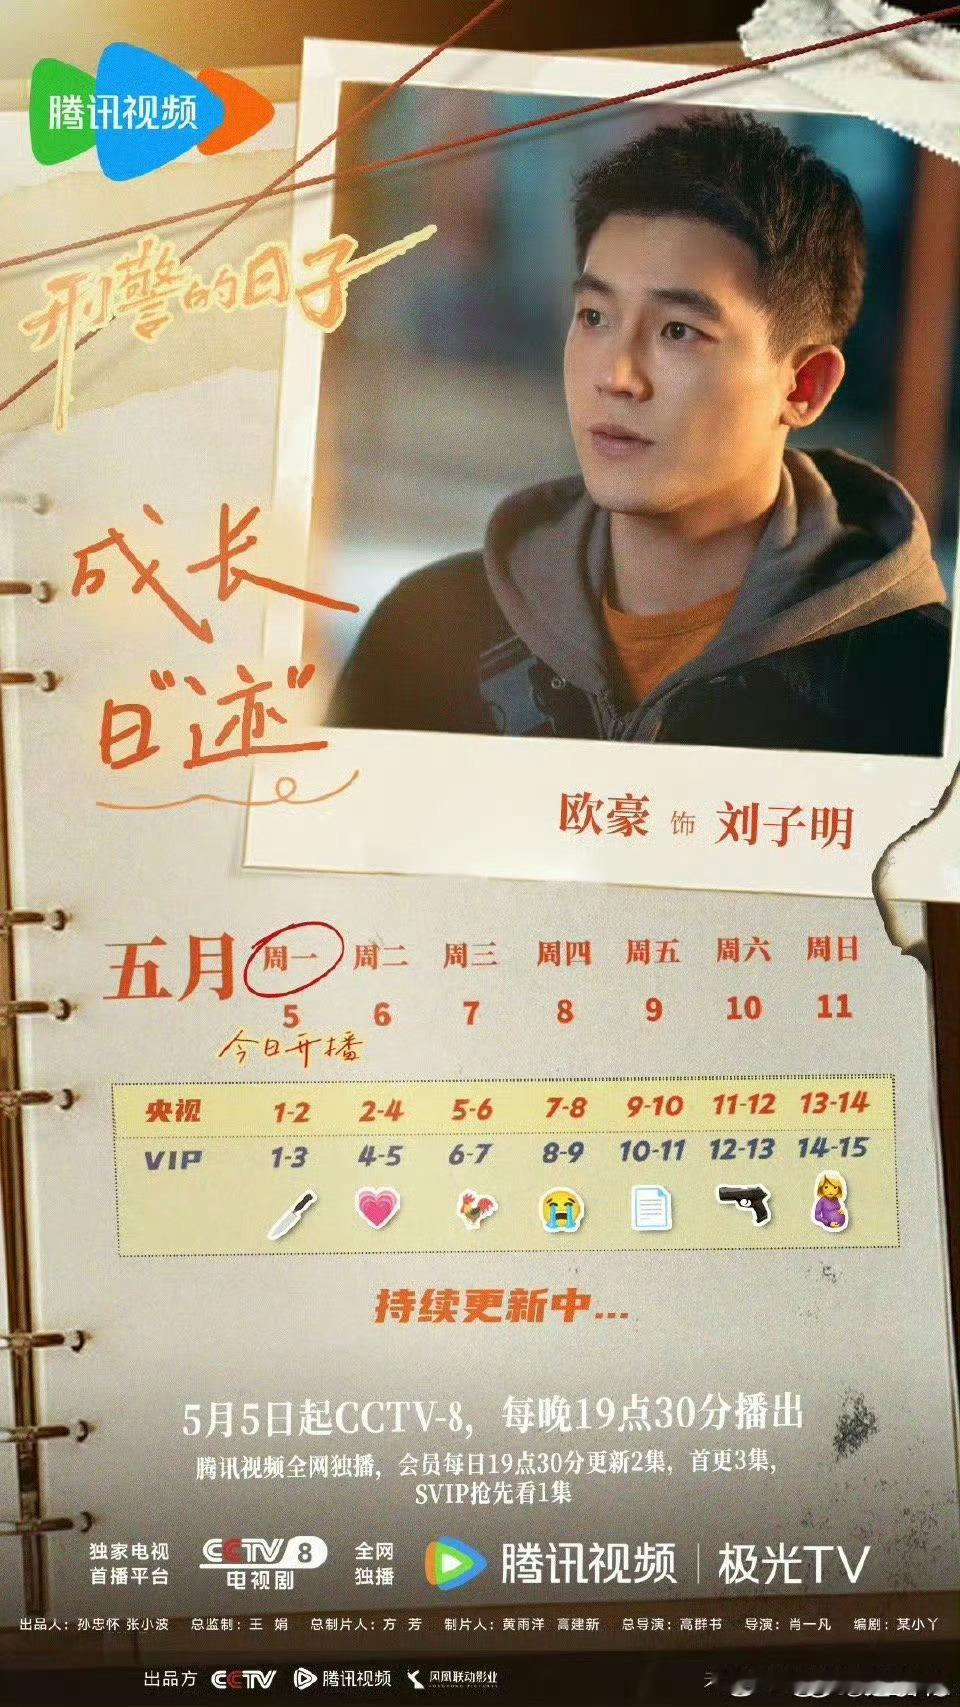 腾讯视频
刑警的日子
成长
日“迹”
欧豪 饰 刘子明
五月 周一 周二 周三 周四 周五 周六 周日
5 6 7 8 9 10 11
今日开播
央视 1-2 2-4 5-6 7-8 9-10 11-12 13-14
VIP 1-3 4-5 6-7 8-9 10-11 12-13 14-15
持续更新中...
5月5日起CCTV-8，每晚19点30分播出
腾讯视频全网独播，会员每日19点30分更新2集，首更3集，
SVIP抢先看1集
独家电视首播平台 CCTV 8 电视剧 全网独播 腾讯视频 | 极光TV
出品人：孙忠怀 张小波 总监制：王 娟 总制片人：方 芳 制片人：黄雨洋 高建新 总导演：高群书 导演：肖一凡 编剧：某小丫
出品方 CCTV 腾讯视频 凤凰联动影业